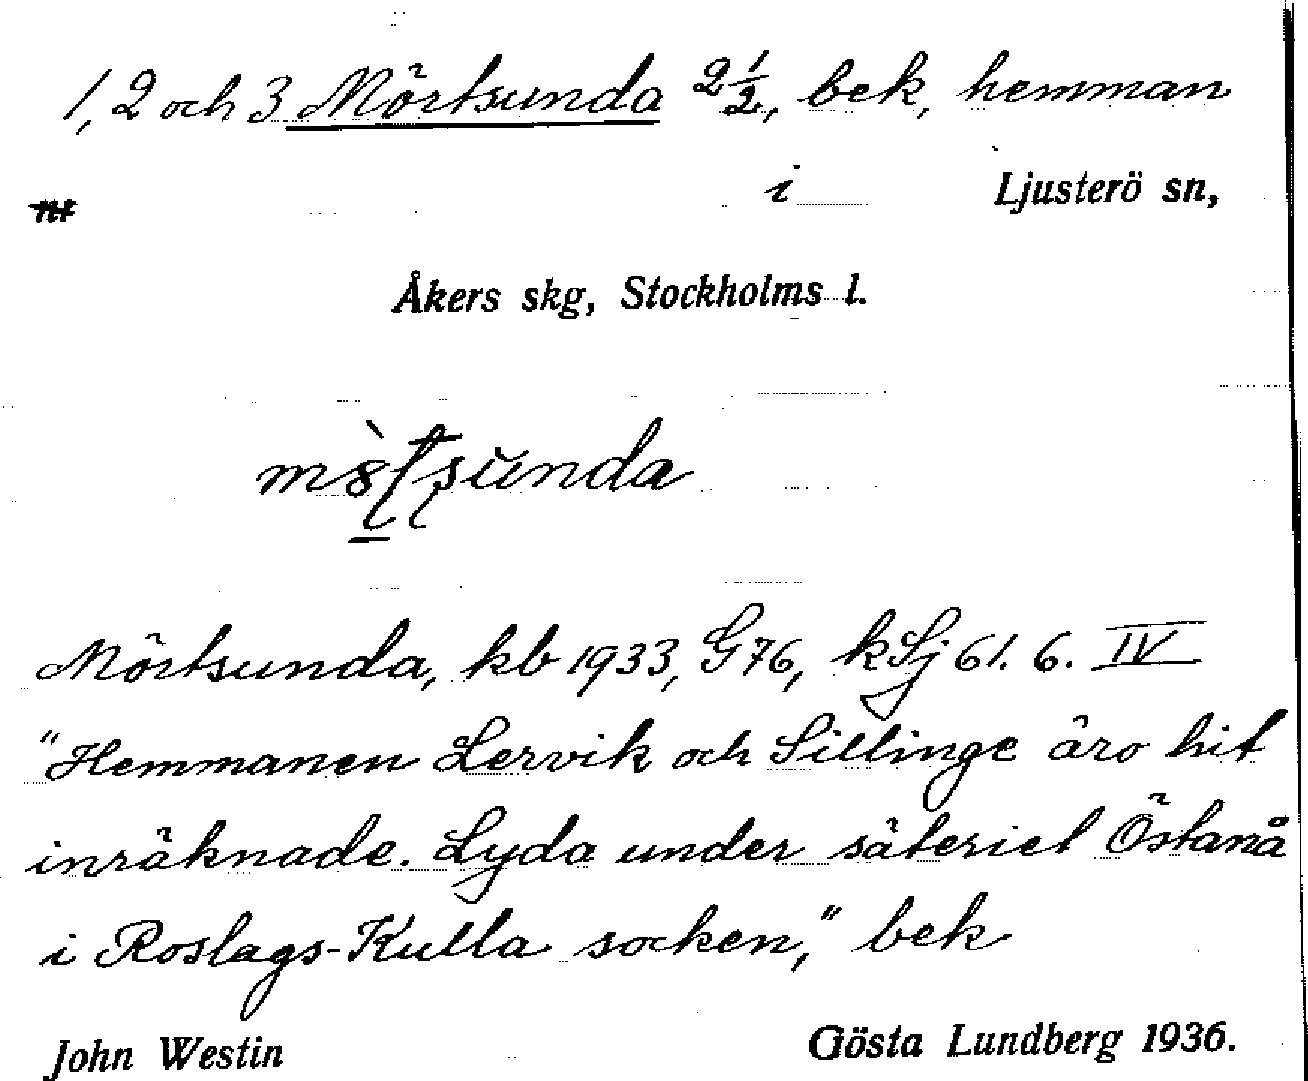 1, 2 och 3 Mörtsunda 2 1/2, bek, hemman
i Ljusterö sn,
Åkers skg, Stockholms l.
Mörtsunda, kb 1933, G 76, k Lj 61. 6. IV
"Hemmanen Lervik och Sillinge äro hit
inräknade. Lyda under säteriet Östanå
i Roslags-Kulla socken," bek
John Westin Gösta Lundberg 1936.